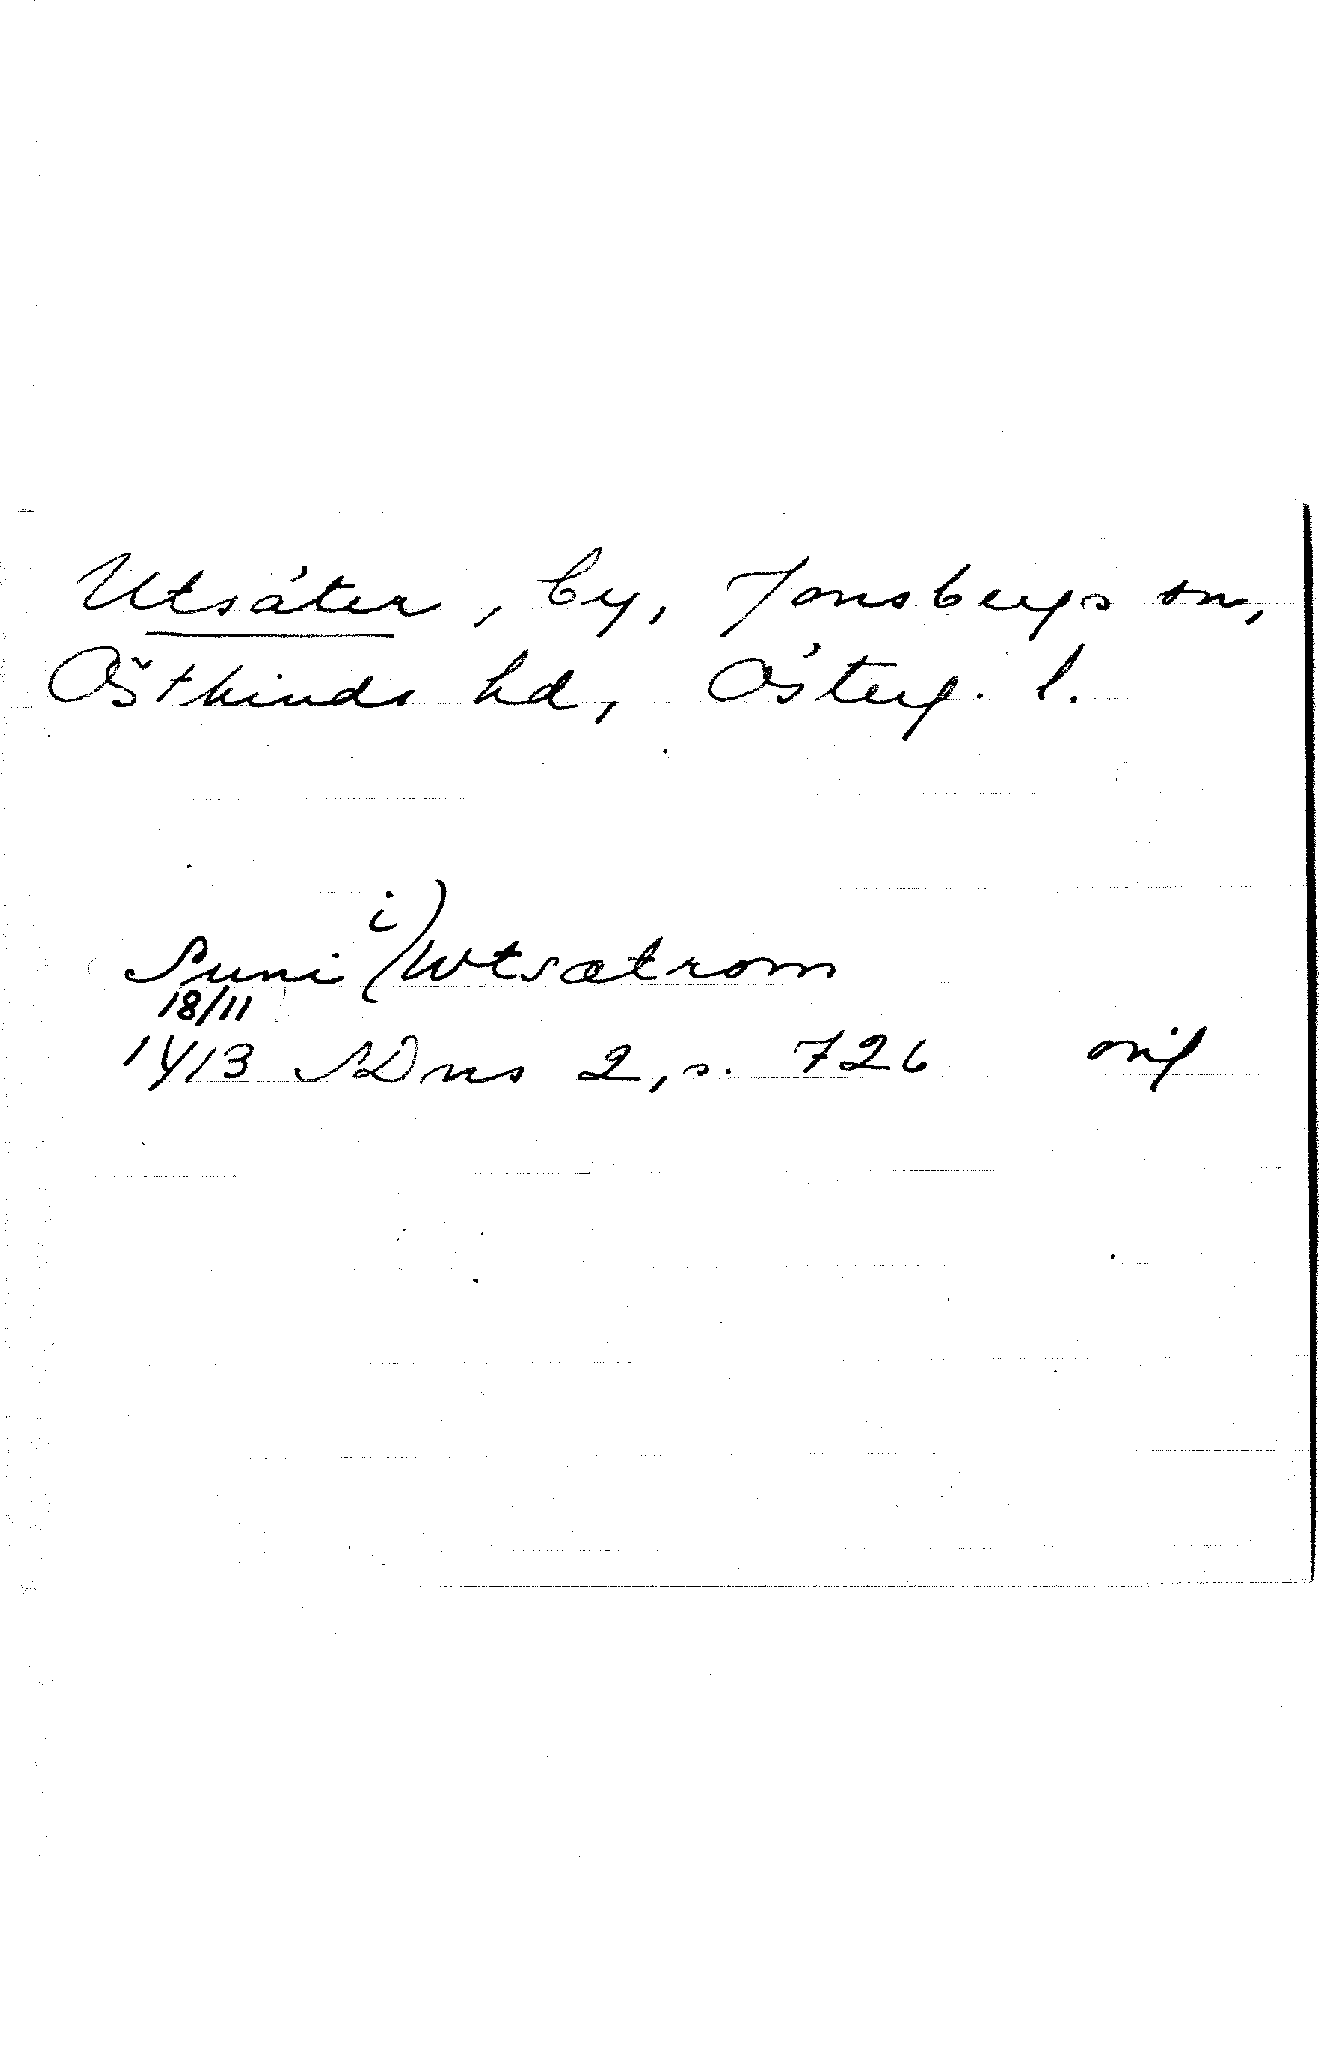 Utsäter, by, Jonsbergs sn,
Östkinds hd, Österg. l.
i)
Suni (Wtsætrom
18/11
1413 SDns 2, s. 726 orig